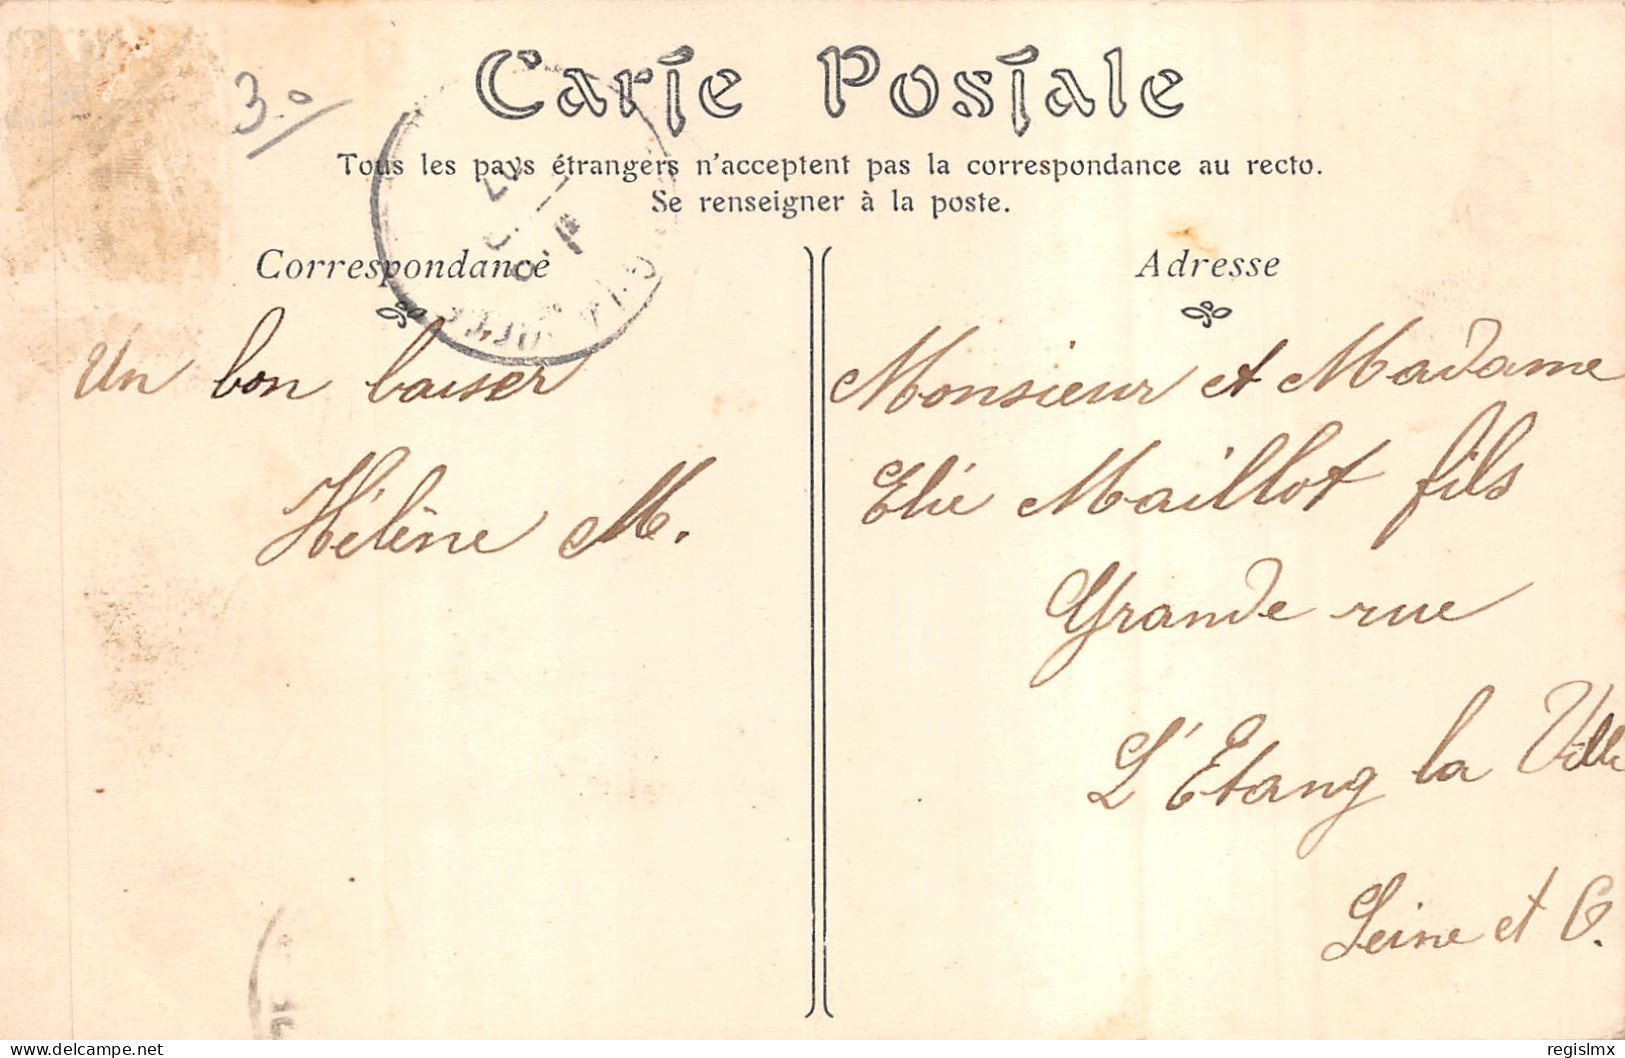 3.0
Carte Postale
Tous les pays étrangers n'acceptent pas la correspondance au recto.
Se renseigner à la poste.
Correspondance
Un bon baiser
Hélène M.
Adresse
Monsieur et Madame
Elie Maillot fils
Grande rue
L'Etang la Ville
Seine et O.
delcampe.net
regislmx